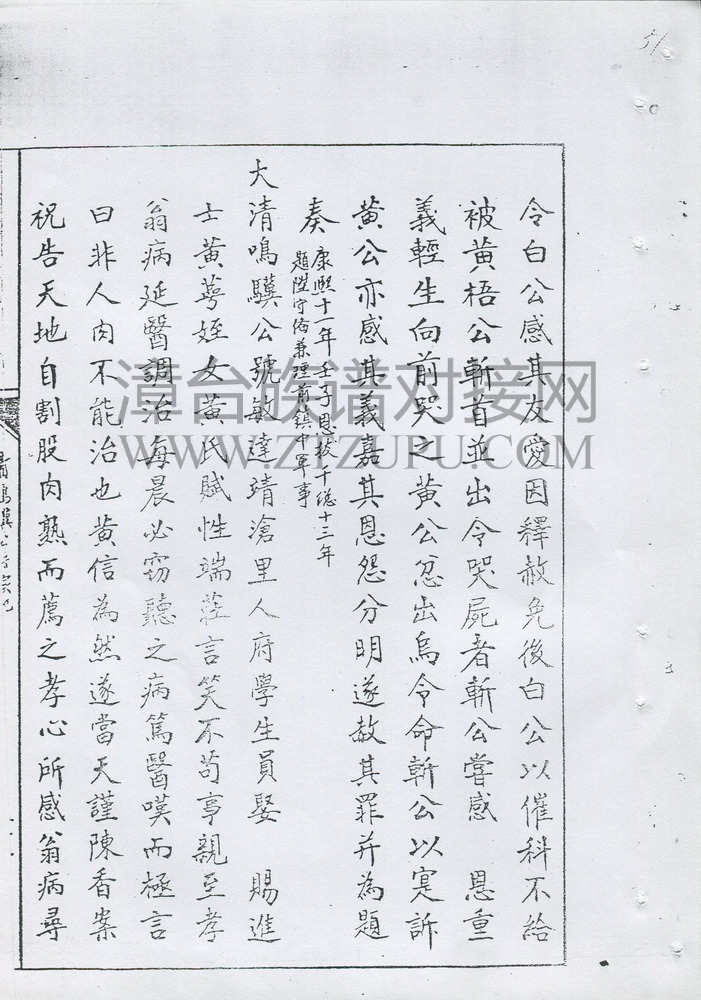 51
令白公感其友愛因釋赦免後白公以催科不給
被黃梧公斬首並出令哭屍者斬公嘗感 恩重
義輕生向前哭之黃公忿出烏令命斬公以寔訴
黃公亦感其義嘉其恩怨分明遂赦其罪并為題
奏 康熙十一年壬子恩拔千總十三年
題陞守備兼理前鎮中軍事
大清鳴驥公號敏達靖滄里人府學生員娶 賜進
士黃蕚姪女黃氏賦性端莊言笑不苟事親至孝
翁病延醫調治每晨必窃聽之病篤醫嘆而極言
曰非人肉不能治也黃信為然遂當天謹陳香案
祝告天地自割股肉熟而薦之孝心所感翁病尋
漳台族谱对接网
WWW.ZTZUPU.COM